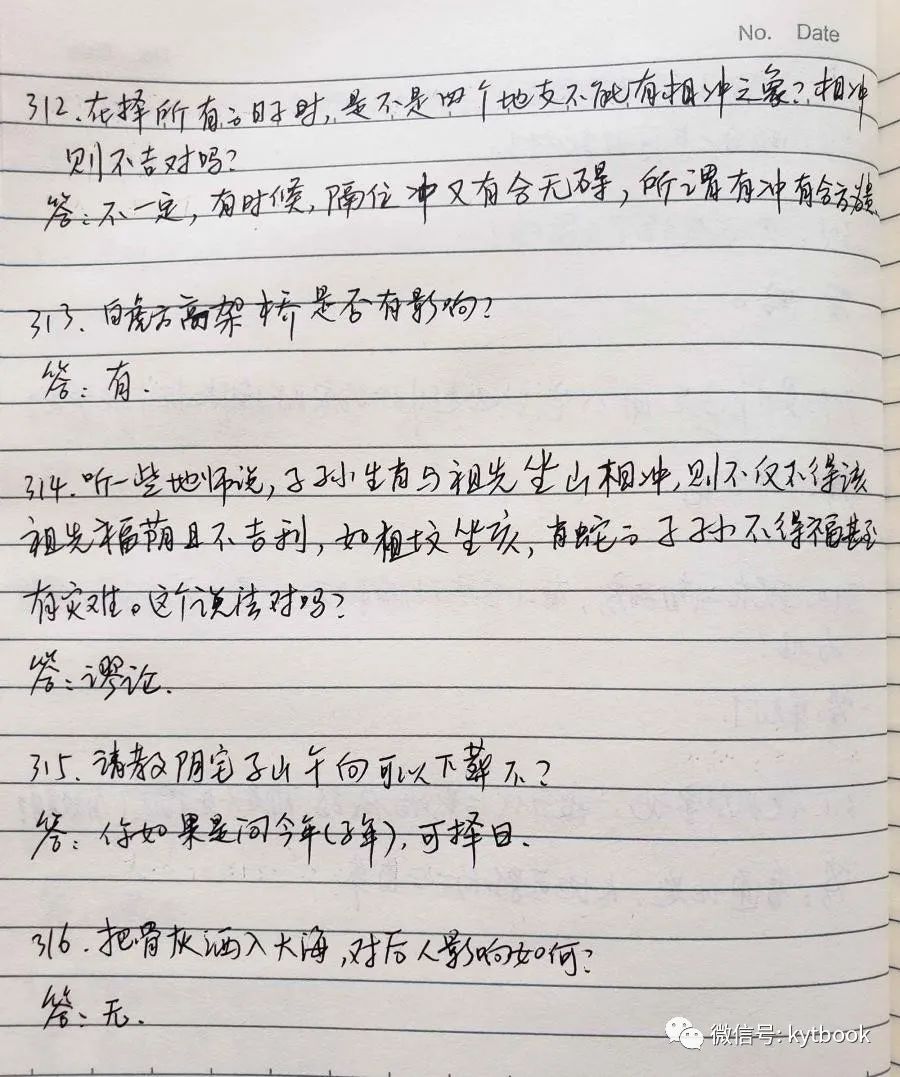 No. Date
312.在择所有之日子时,是不是四个地支不能有相冲之象?相冲
则不吉对吗?
答:不一定,有时候,隔位冲又有合无碍,所谓有冲有合方为贵.
313.白虎方高架桥是否有影响?
答:有.
314.听一些地师说,子孙生肖与祖先坐山相冲,则不仅不得该
祖先福荫且不吉利,如祖坟坐亥,肖蛇之子孙不得福甚至
有灾难。这个说法对吗?
答:谬论.
315.请教阴宅子山午向可以下葬不?
答:你如果是问今年(子年),可择日.
316.把骨灰洒入大海,对后人影响如何?
答:无.
微信号: kytbook